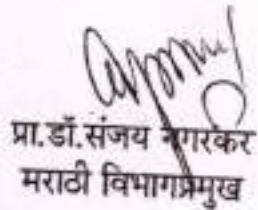 प्रा.डॉ.संजय नगरकर
मराठी विभागप्रमुख